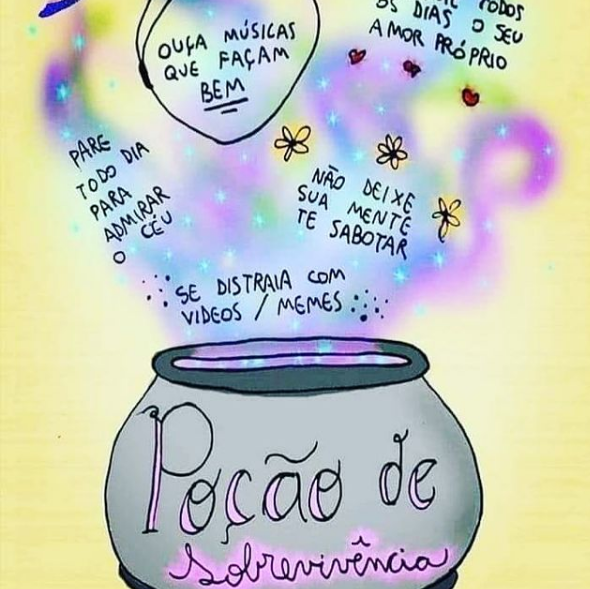 OUÇA MÚSICAS
QUE FAÇAM
BEM
TODOS
OS DIAS O SEU
AMOR PRÓPRIO
PARE
TODO DIA
PARA
ADMIRAR
O CÉU
NÃO DEIXE
SUA MENTE
TE SABOTAR
SE DISTRAIA COM
VIDEOS / MEMES
Poção de
Sobrevivência